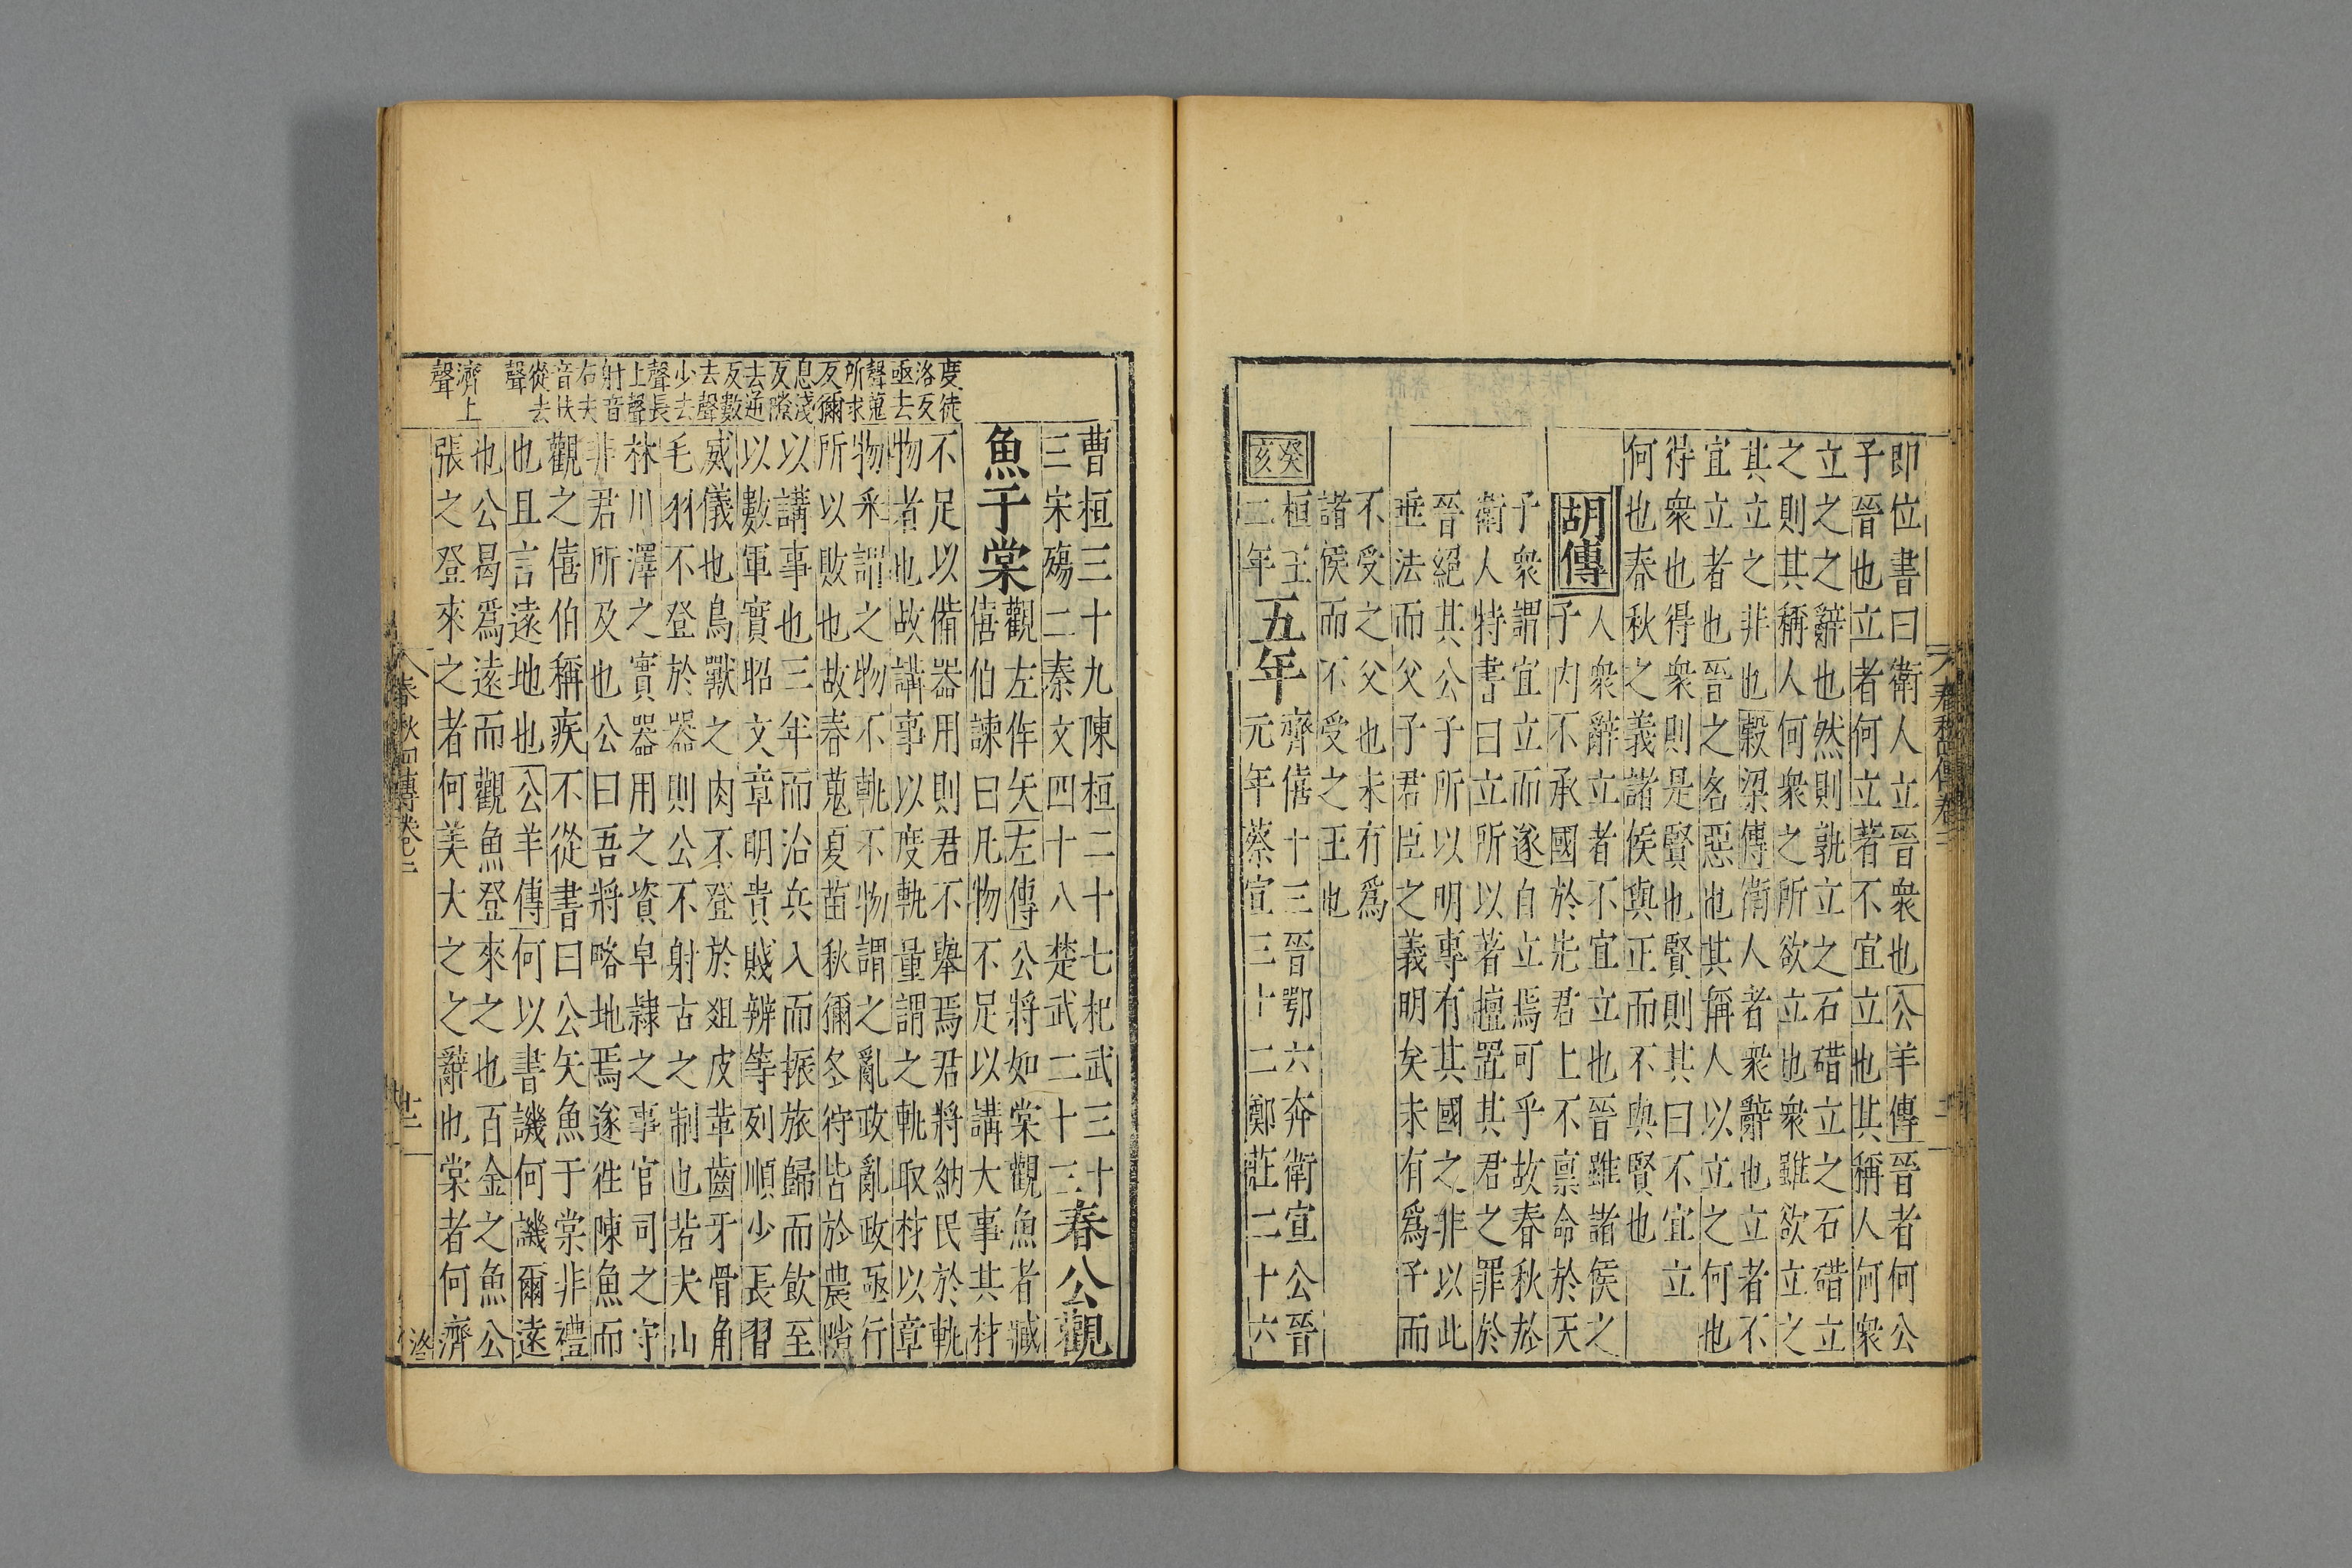 春秋四傳卷二
即位書曰衛人立晉衆也公羊傳晉者何公
子晉也立者何立者不宜立也其稱人何衆
立之之辭也然則孰立之石碏立之石碏立
之則其稱人何衆之所欲立也衆雖欲立之
其立之非也穀梁傳衛人者衆辭也立者不
宜立者也晉之名惡也其稱人以立之何也
得衆也得衆則是賢也賢則其曰不宜立
何也春秋之義諸侯與正而不與賢也
胡傳人衆辭立者不宜立也晉雖諸侯之
子内不承國於先君上不禀命於天
子衆謂宜立而遂自立焉可乎故春秋於
衛人特書曰立所以著擅置其君之罪於
晉絕其公子所以明專有其國之非以此
垂法而父子君臣之義明矣未有爲子而
不受之父也未有爲
諸侯而不受之王也
癸亥桓王二年五年齊僖十三晉鄂六奔衛宣公晉
元年蔡宣三十二鄭莊二十六
度徒
洛反
亟去
聲蒐
所求
反獮
息淺
反隙
去逆
反數
去聲
少去
聲長
上聲
射音
石夫
音扶
從去
聲
濟上
聲
曹桓三十九陳桓二十七杞武三十
三宋殤二秦文四十八楚武二十三春公觀
魚于棠觀左作矢左傳公將如棠觀魚者臧
僖伯諫曰凡物不足以講大事其材
不足以備器用則君不舉焉君將納民於軌
物者也故講事以度軌量謂之軌取材以章
物采謂之物不軌不物謂之亂政亂政亟行
所以敗也故春蒐夏苗秋獮冬狩皆於農隙
以講事也三年而治兵入而振旅歸而飲至
以數軍實昭文章明貴賤辨等列順少長習
威儀也鳥獸之肉不登於俎皮革齒牙骨角
毛羽不登於器則公不射古之制也若夫山
林川澤之實器用之資皁隸之事官司之守
非君所及也公曰吾將略地焉遂往陳魚而
觀之僖伯稱疾不從書曰公矢魚于棠非禮
也且言遠地也公羊傳何以書譏何譏爾遠
也公曷爲遠而觀魚登來之也百金之魚公
張之登來之者何美大之之辭也棠者何濟
春秋四傳卷二